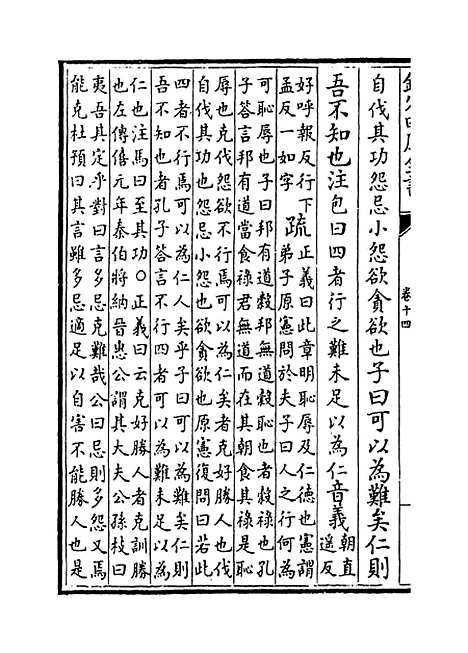 欽定四庫全書
卷十四
自伐其功怨忌小怨欲貪欲也子曰可以為難矣仁則
吾不知也注包曰四者行之難未足以為仁音義朝直
遥反
好呼報反行下
孟反一如字
疏
正義曰此章明恥辱及仁德也憲謂
弟子原憲問於夫子曰人之行何為
可恥辱也子曰邦有道穀邦無道穀恥也者穀祿也孔
子答言邦有道當食祿君無道而在其朝食其祿是恥
辱也克伐怨欲不行焉可以為仁矣者克好勝人也伐
自伐其功也怨忌小怨也欲貪欲也原憲復問曰若此
四者不行焉可以為仁人矣乎子曰可以為難矣仁則
吾不知也者孔子答言不行四者可以為難未足以為
仁也注馬曰至其功〇正義曰云克好勝人者克訓勝
也左傳僖元年秦伯將納晉惠公謂其大夫公孫枝曰
夷吾其定乎對曰言多忌克難哉公曰忌則多怨又焉
能克杜預曰其言雖多忌適足以自害不能勝人也是